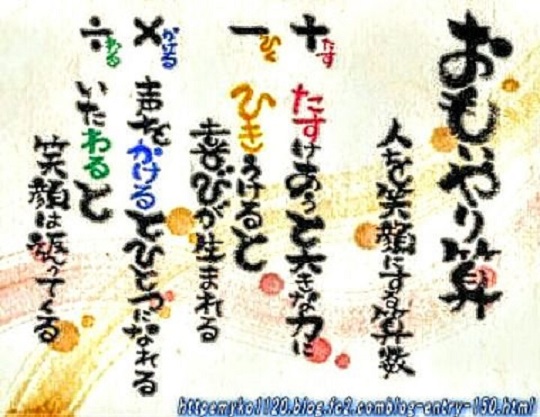 おもいやり算
人を笑顔にする算数
＋たす たすけあうと大きな力に
－ひく ひきうけると
喜びが生まれる
×かける 声をかけるとひとつになれる
÷わる いたわると
笑顔は返ってくる